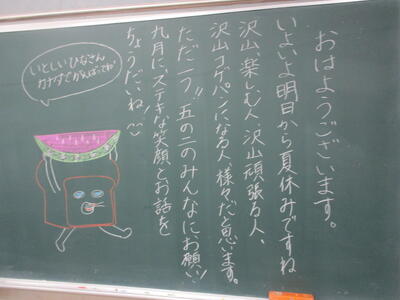 おはようございます。
いよいよ明日から夏休みですね
沢山楽しむ人、沢山頑張る人、
沢山コゲパンになる人、様々だと思います。
ただ一つ!! 五の二のみんなにお願い!
九月に、ステキな笑顔とお話を
ちょうだいね!
いとしいひなさん